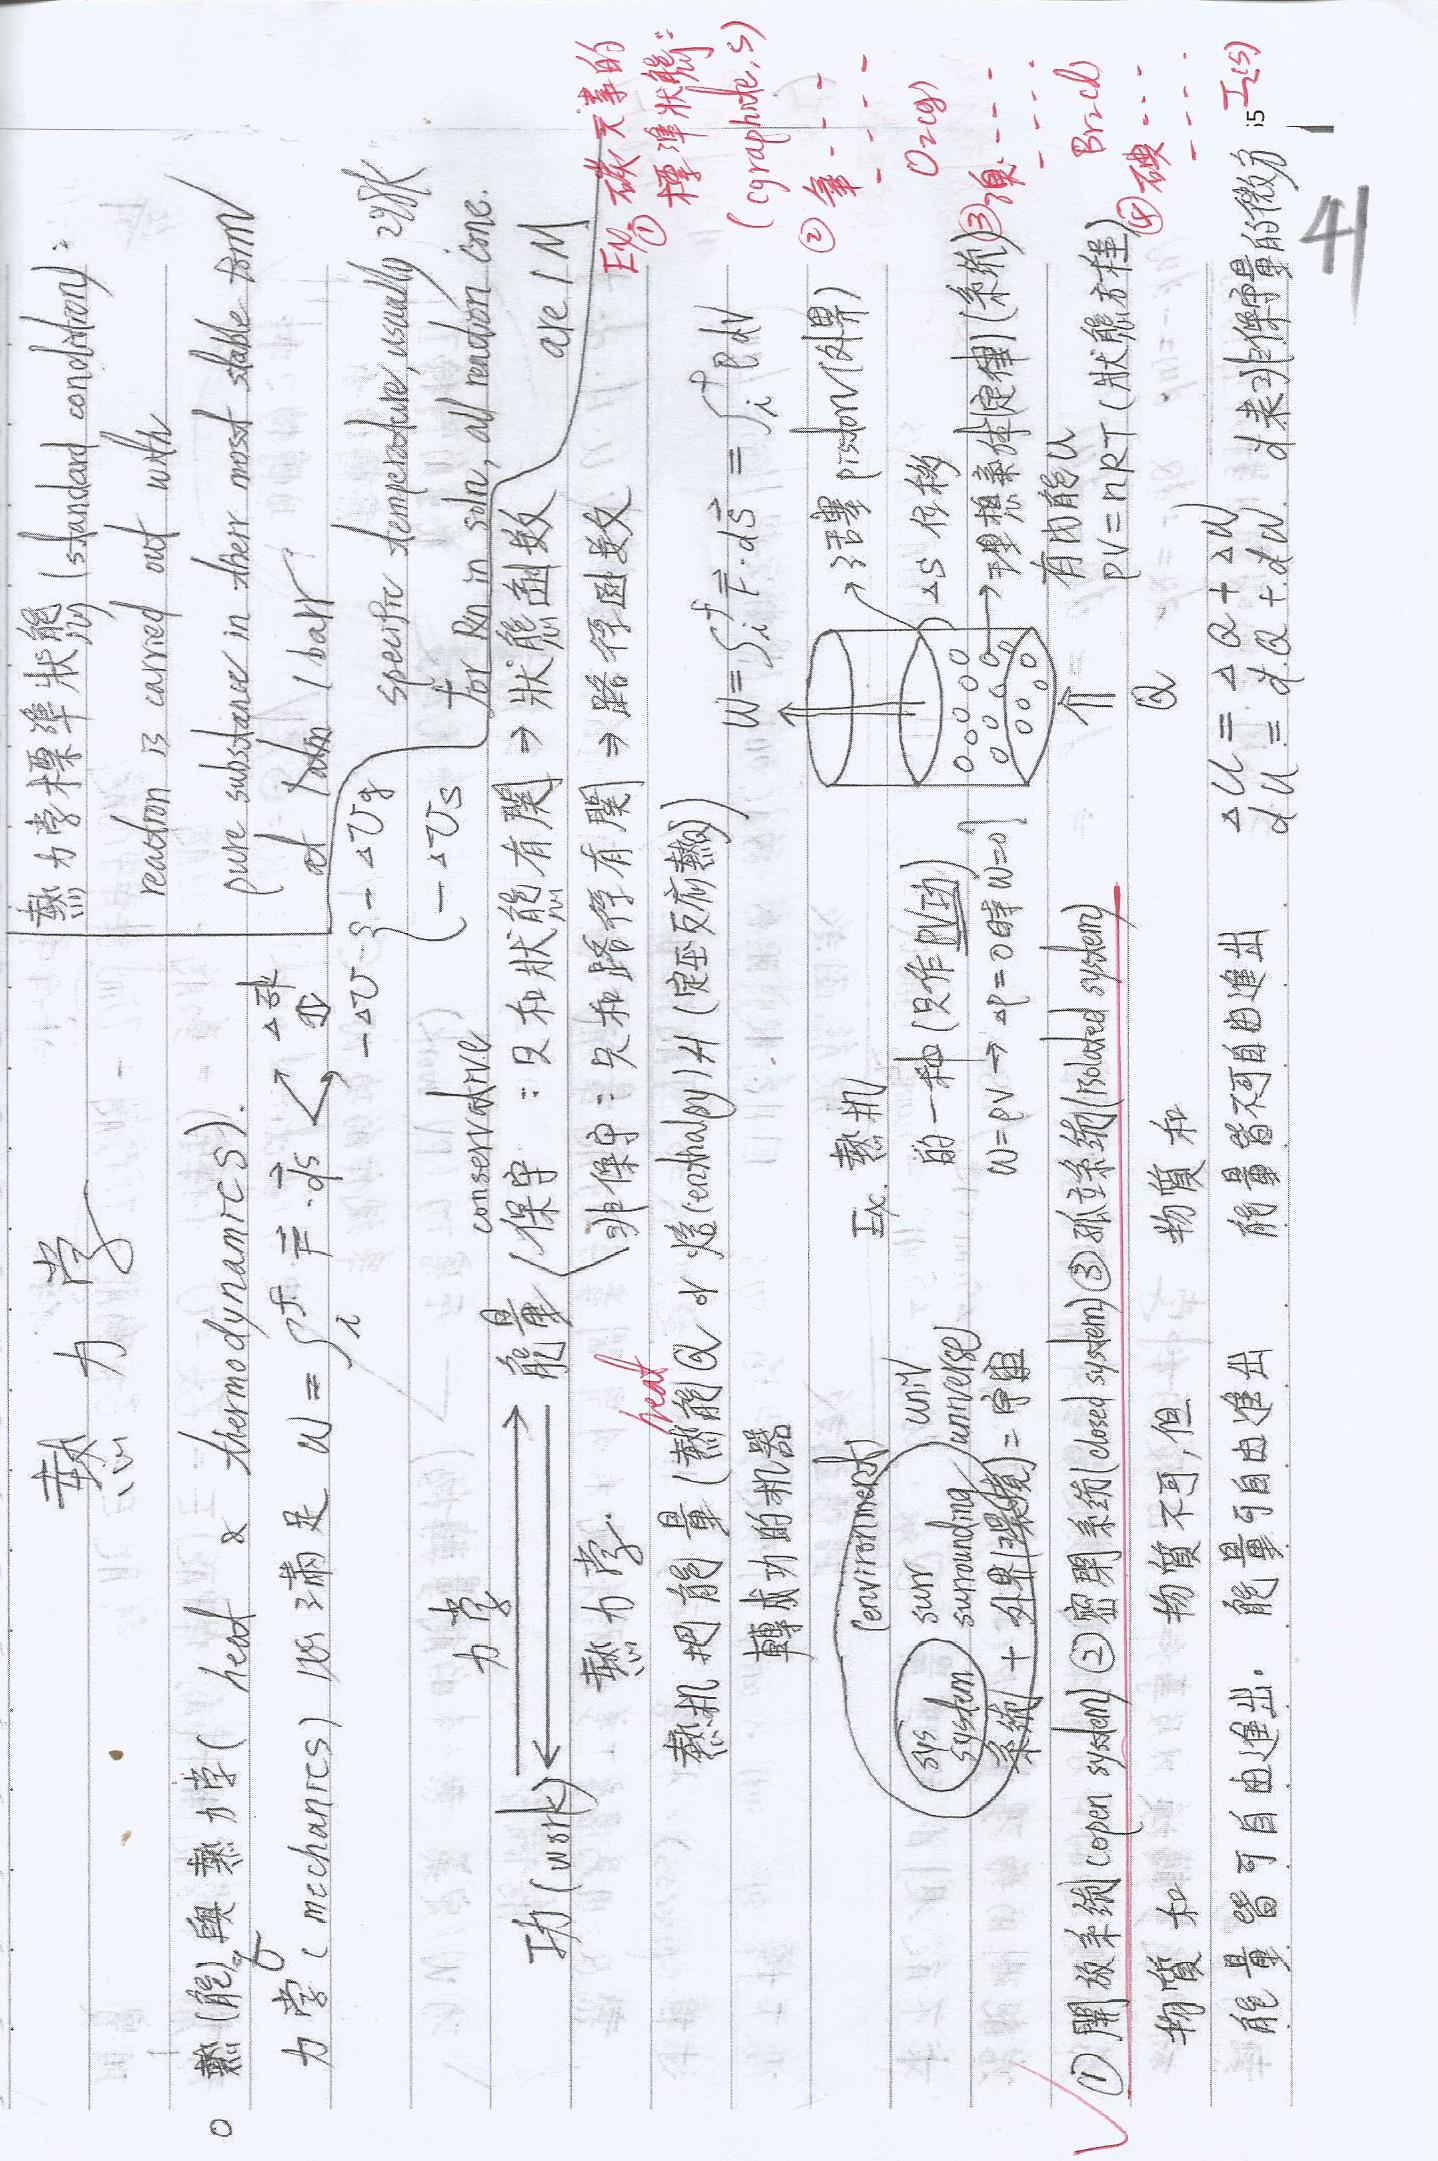 熱力学
熱力学標準狀態 (standard condition) :
reaction is carried out with
pure substance in their most stable form
at 1 atm / bar
specific temperature, usually 298K
for Rxn in soln, all reaction conc.
are 1M
熱(能)與熱力学 ( heat & thermodynamics ).
力学 ( mechanics )
W = ∫ᵢᶠ F⃗·ds⃗
-ΔU
-ΔUg
-ΔUs
力学
功 (work)
能量
熱力学.
conservative
保守 : 只和狀態有関 ⇒ 狀態函数
非保守 : 只和路徑有関 ⇒ 路徑函数
熱机 把能量 (熱能Q or 焓(enthalpy) H (定压反应熱))
heat
轉成功的机器
W = ∫ᵢᶠ F⃗·ds⃗ = ∫ᵢᶠ P dV
(environment)
sys
system
surr
surrounding
univ
universe
系統 + 外界(環境) = 宇宙
Ex. 熱机
的一种 (只作PV功)
W = PV → ΔP = 0時 W = 0
活塞 piston (边界)
ΔS 位移
理想氣体(定律) (系統)
有内能U
PV = nRT (狀態方程)
Q
① 開放系統 (open system) ② 密閉系統 (closed system) ③ 孤立系統 (isolated system)
物質和
能量皆可自由進出.
物質不可,但
能量可自由進出
物質和
能量皆不可自由進出
ΔU = ΔQ + ΔW
dU = đQ + đW
đ表引非保守量的微分
Ex. ① 碳元素的
標準狀態:
C(graphite, s)
② 氧 - - -
O₂(g)
③ 溴 - - -
Br₂(l)
④ 碘 - - -
I₂(s)
41